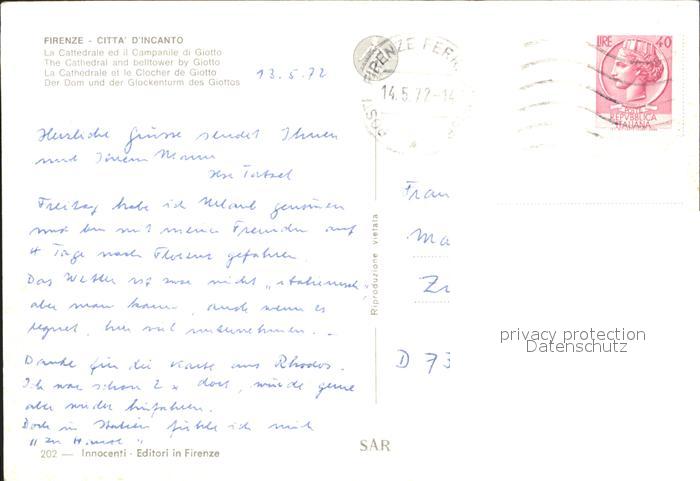 FIRENZE - CITTA' D'INCANTO
La Cattedrale ed il Campanile di Giotto
The Cathedral and belltower by Giotto
La Cathedrale et le Clocher de Giotto
Der Dom und der Glockenturm des Giottos
13.5.72
FIRENZE FERR
14.5.72-14
POSTE
LIRE 40
POSTE
REPVBBLICA
ITALIANA
Herzliche Grüsse sendet Ihnen
und Ihrem Mann
Ilse
Freitag habe ich Urlaub genommen
und bin mit meinen Freunden auf
4 Tage nach Florenz gefahren.
Das Wetter ist zwar nicht „italienisch"
aber man kann, auch wenn es
regnet, hier viel unternehmen. -
Danke für die Karte aus Rhodos.
Ich war schon 2 x dort, würde gerne
aber wieder hinfahren.
Doch in Italien fühle ich mich
"zu Hause"
Reproduzione vietata
Frau
Ma
D 73
privacy protection
Datenschutz
202 — Innocenti - Editori in Firenze
SAR